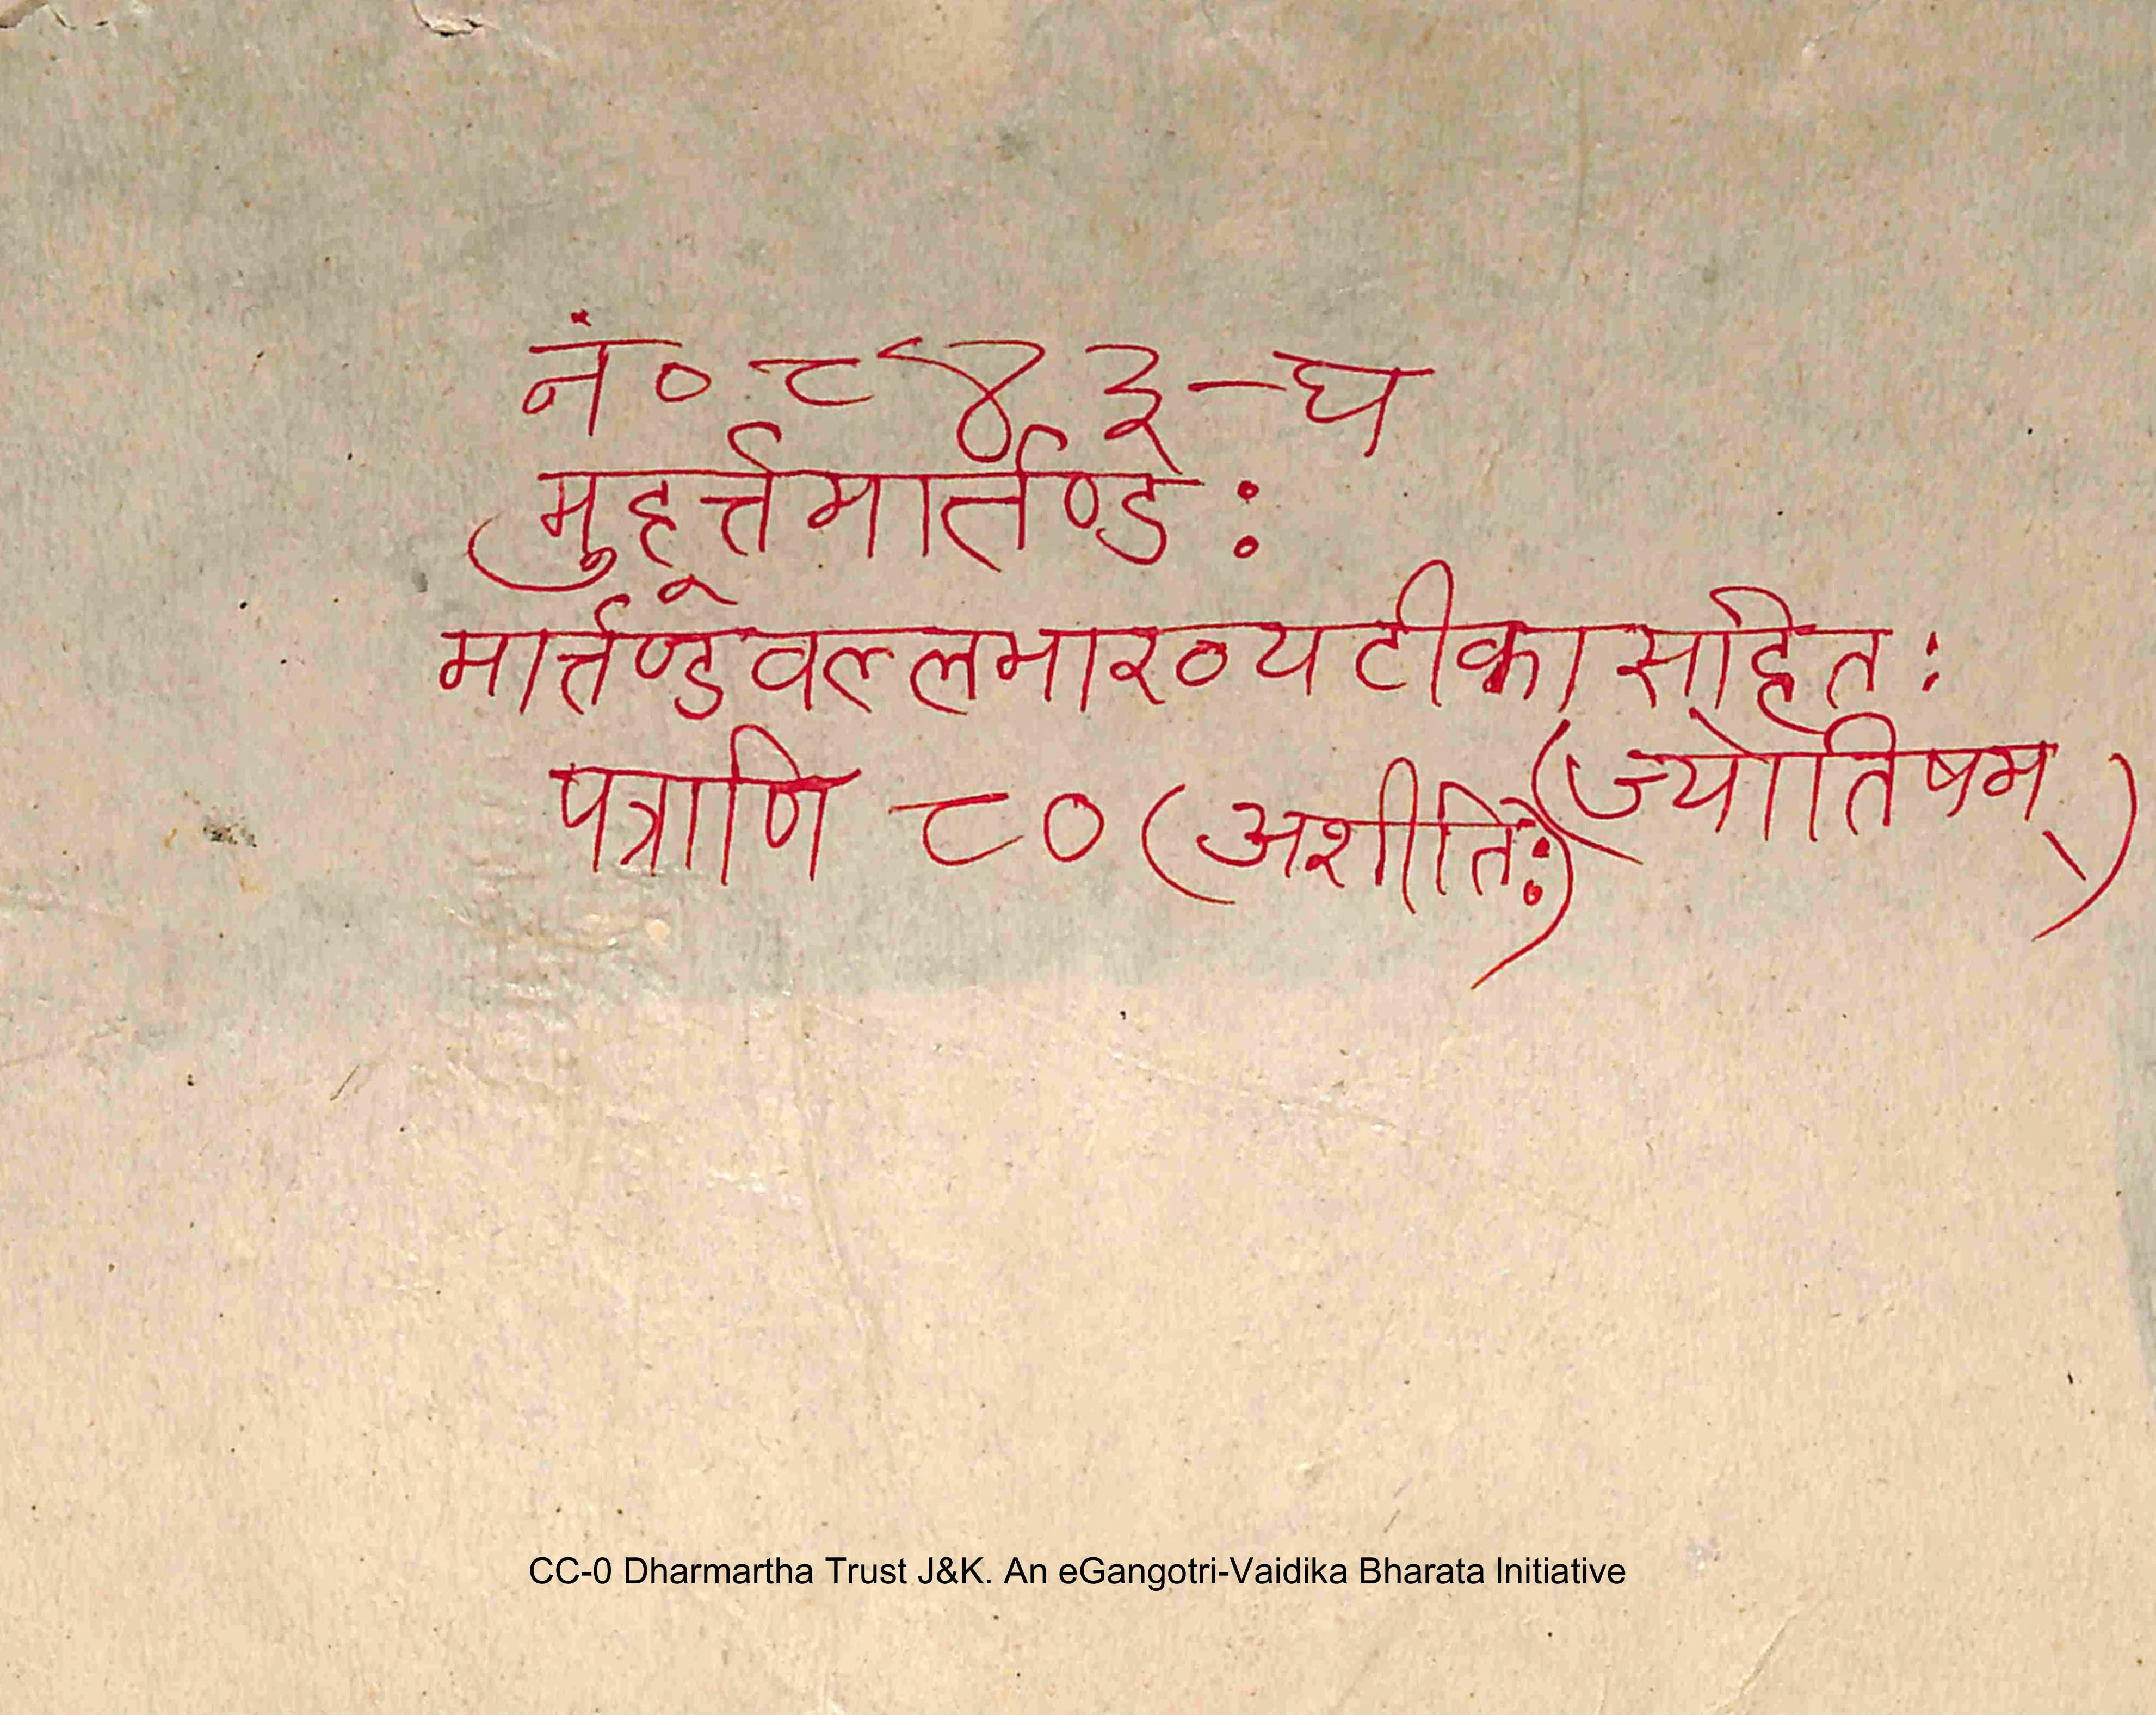 नं० ८४३-घ
मुहूर्त्तमार्तण्ड:
मार्त्तण्डवल्लभाख्यटीकासहित:
(ज्योतिषम्)
पत्राणि ८० (अशीति:)
CC-0 Dharmartha Trust J&K. An eGangotri-Vaidika Bharata Initiative